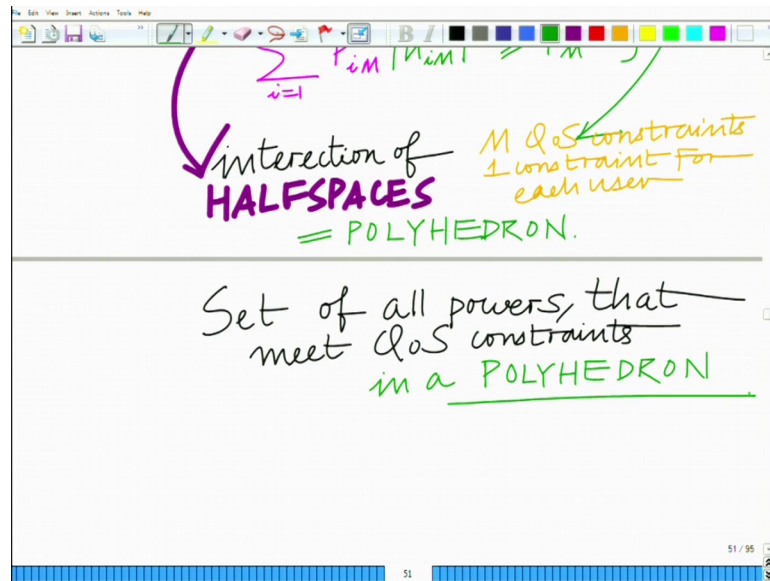 File Edit View Insert Actions Tools Help
B I
i=1
interection of
HALFSPACES
= POLYHEDRON.
M QoS constraints
1 constraint For
each user
Set of all powers, that
meet QoS constraints
in a POLYHEDRON
51 / 95
51